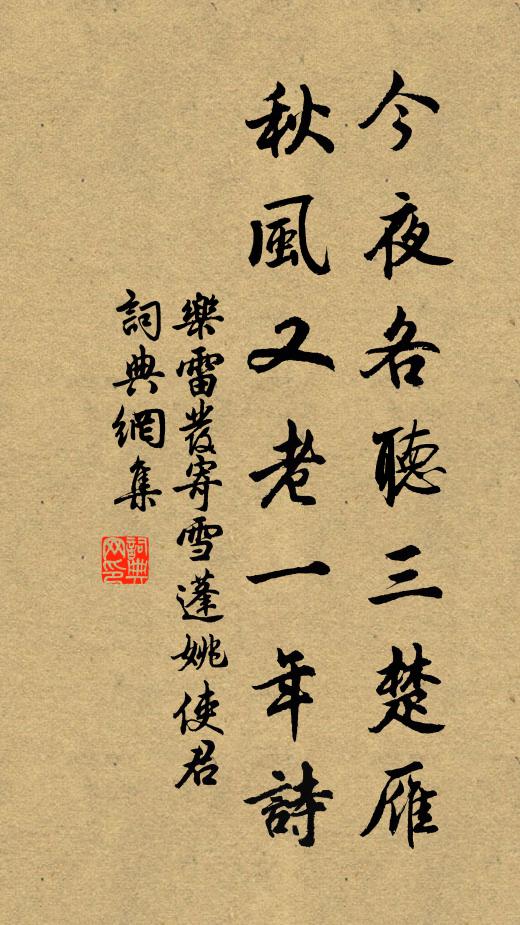 今夜各聽三楚雁
秋風又老一年詩
樂雷發寄雪蓬姚使君
詞典網集
詞典网印